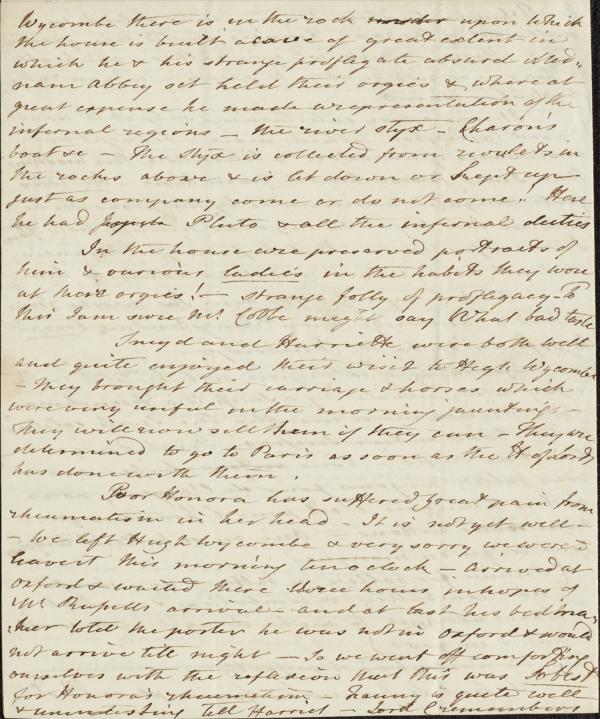 Wycombe there is in the rock under upon which
the house is built a cave of great extent in
which he & his strange profligate absurd Med-
nam Abbey set held their orgies & where at
great expense he made a representation of the
infernal regions – the river Styx – Charon's
boat &c – The Styx is collected from rivulets in
the rocks above & is let down or kept up
just as company come or do not come! Here
he had Pluto & all the infernal deities
In the house are preserved portraits of
him & various ladies in the habits they wore
at their orgies! – strange folly of profligacy – To
this I am sure Mr. might say What bad taste
Sneyd and Harriette were both well
and quite enjoyed their visit to High Wycombe
– They brought their carriage & horses which
were very useful in the morning jauntings –
They will now sell them if they can – They are
determined to go to Paris as soon as the H of Lords
has done with them.
Poor Honora has suffered great pain from
rheumatism in her head – It is not yet well –
– We left High Wycombe & very sorry we were to
leave it this morning ten oclock – arrived at
Oxford & waited there three hours in hopes of
Mr Russells arrival – and at last his bed ma-
ker told the porter he was not in Oxford & would
not arrive till night – So we went off comforting
ourselves with the reflexion that this was best
for Honora's rheumatism – Fanny is quite well
& till Harriet – Lord C remembers